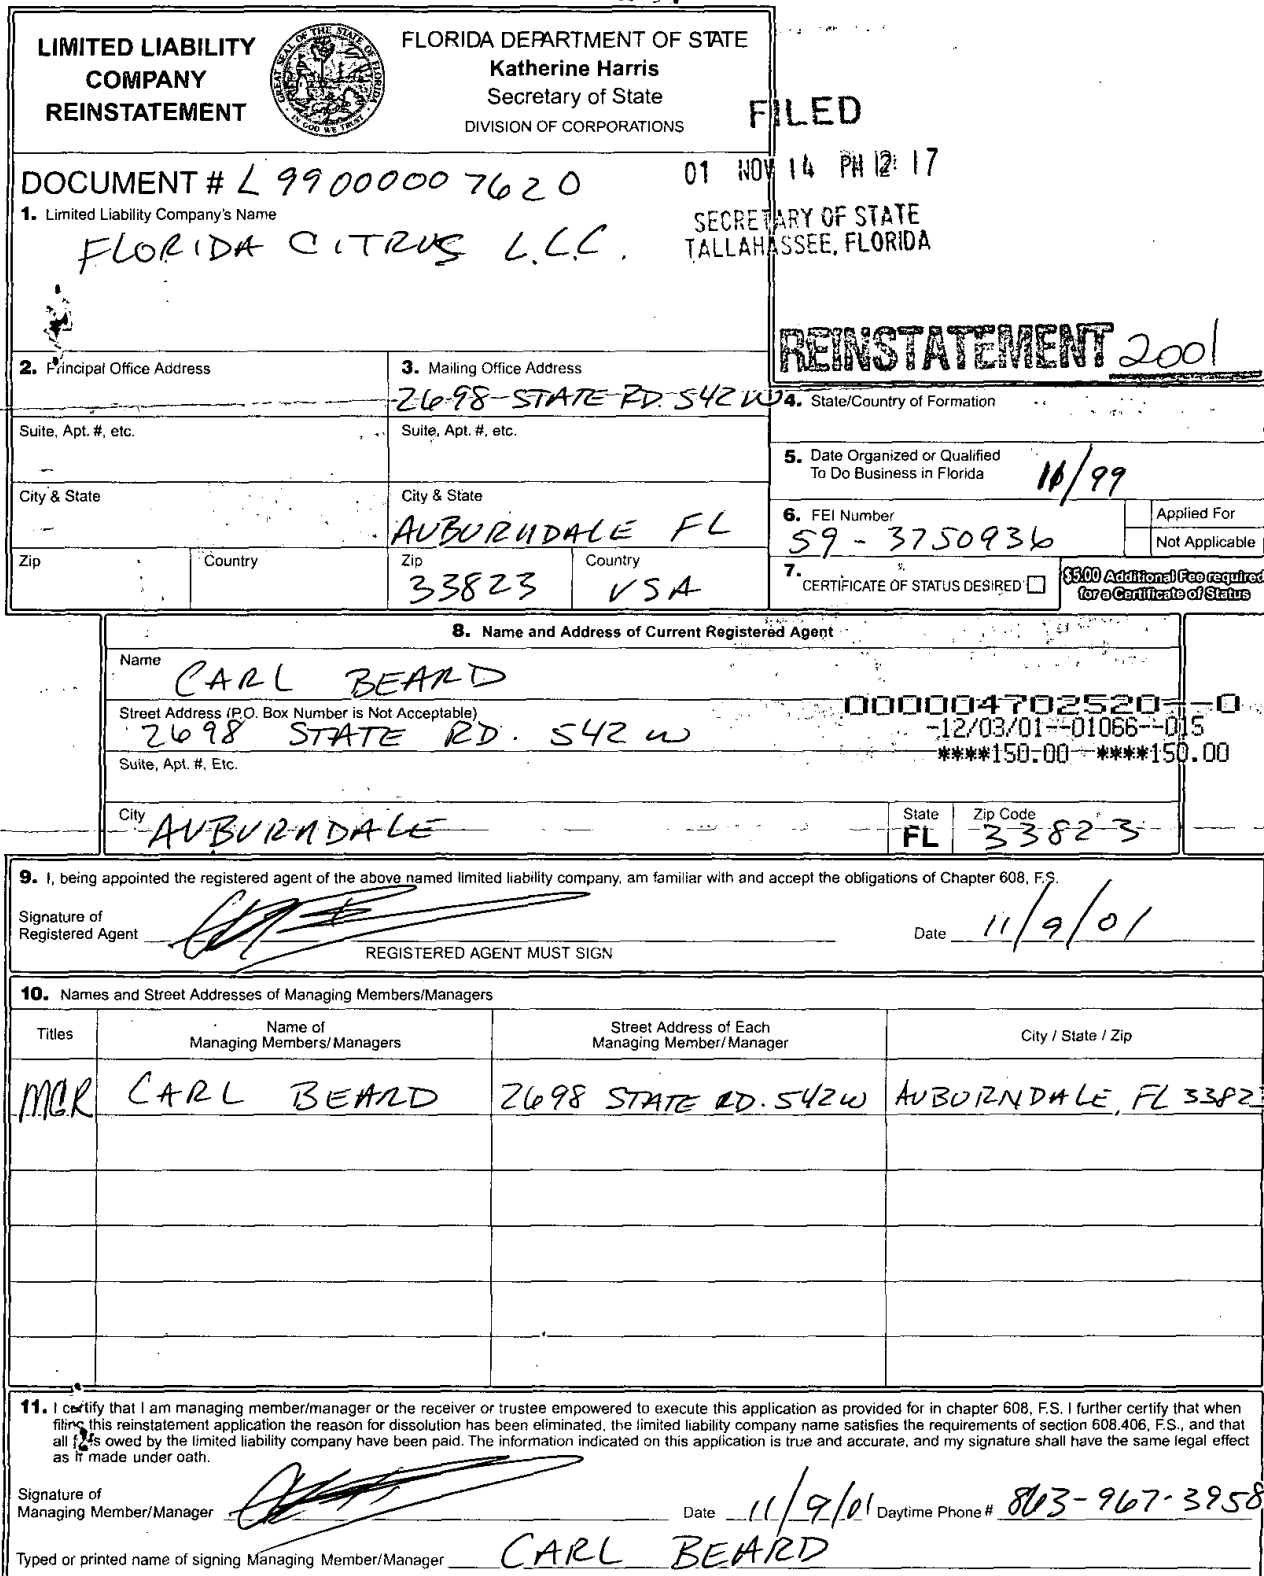 LIMITED LIABILITY
COMPANY
REINSTATEMENT
GREAT SEAL OF THE STATE OF FLORIDA
IN GOD WE TRUST
FLORIDA DEPARTMENT OF STATE
Katherine Harris
Secretary of State
DIVISION OF CORPORATIONS
FILED
01 NOV 14 PM 12:17
SECRETARY OF STATE
TALLAHASSEE, FLORIDA
DOCUMENT # L99000007620
1. Limited Liability Company's Name
FLORIDA CITRUS L.L.C.
REINSTATEMENT 2001
2. Principal Office Address
3. Mailing Office Address
2698 STATE RD. 542 W
4. State/Country of Formation
Suite, Apt. #, etc.
Suite, Apt. #, etc.
5. Date Organized or Qualified
To Do Business in Florida
11/99
City & State
City & State
AUBURNDALE FL
6. FEI Number
59-3750936
Applied For
Not Applicable
Zip
Country
Zip
33823
Country
USA
7.
CERTIFICATE OF STATUS DESIRED
$5.00 Additional Fee required
for a Certificate of Status
8. Name and Address of Current Registered Agent
Name
CARL BEARD
Street Address (P.O. Box Number is Not Acceptable)
2698 STATE RD. 542 W
000004702520--0
-12/03/01--01066--015
****150.00 ****150.00
Suite, Apt. #, Etc.
City
AUBURNDALE
State
FL
Zip Code
33823
9. I, being appointed the registered agent of the above named limited liability company, am familiar with and accept the obligations of Chapter 608, F.S.
Signature of
Registered Agent
REGISTERED AGENT MUST SIGN
Date 11/9/01
10. Names and Street Addresses of Managing Members/Managers
Titles
Name of
Managing Members/Managers
Street Address of Each
Managing Member/Manager
City / State / Zip
MGR CARL BEARD 2698 STATE RD. 542 W AUBURNDALE, FL 33823
11. I certify that I am managing member/manager or the receiver or trustee empowered to execute this application as provided for in chapter 608, F.S. I further certify that when
filing this reinstatement application the reason for dissolution has been eliminated, the limited liability company name satisfies the requirements of section 608.406, F.S., and that
all fees owed by the limited liability company have been paid. The information indicated on this application is true and accurate, and my signature shall have the same legal effect
as if made under oath.
Signature of
Managing Member/Manager
Date 11/9/01 Daytime Phone # 863-967-3958
Typed or printed name of signing Managing Member/Manager CARL BEARD